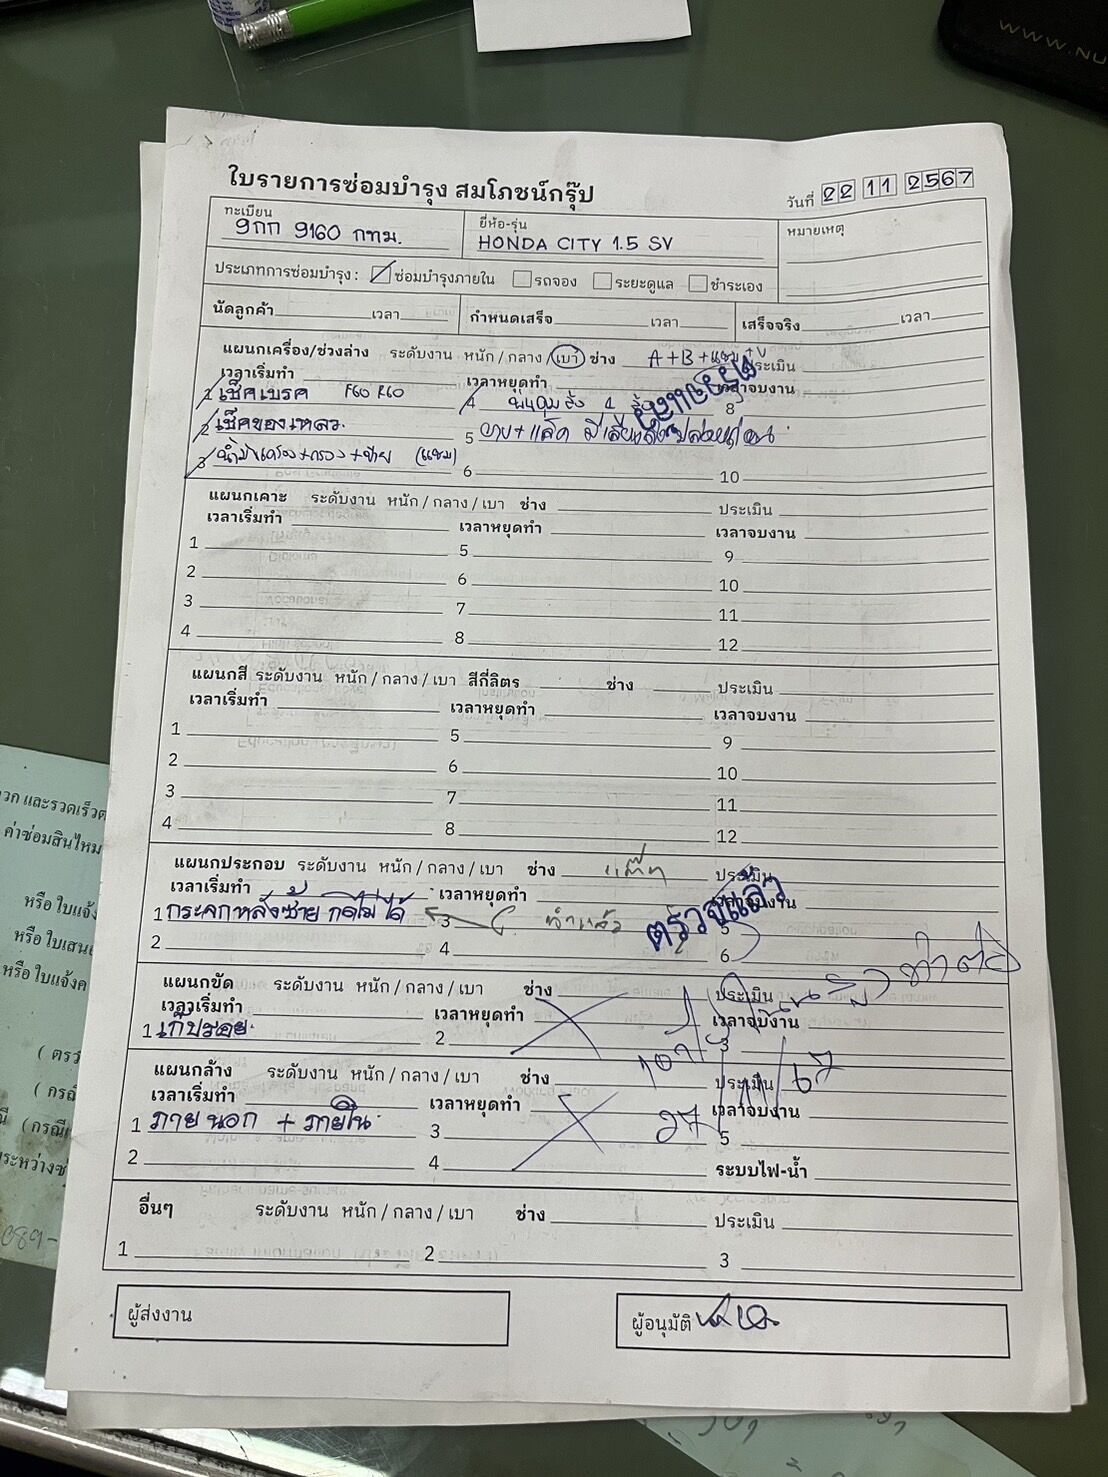 WWW.NU
ใบรายการซ่อมบำรุง สมโภชน์กรุ๊ป
วันที่ 22 11 2567
ทะเบียน
9กก 9160 กทม.
ยี่ห้อ-รุ่น
HONDA CITY 1.5 SV
หมายเหตุ
ประเภทการซ่อมบำรุง : ซ่อมบำรุงภายใน รถจอง ระยะดูแล ชำระเอง
นัดลูกค้า เวลา กำหนดเสร็จ เวลา เสร็จจริง เวลา
แผนกเครื่อง/ช่วงล่าง ระดับงาน หนัก / กลาง / เบา ช่าง A+B+แชม ประเมิน
เวลาเริ่มทำ เวลาหยุดทำ เวลาจบงาน
1 เช็คเบรค F60 R60 4 8
ตรวจแล้ว
2 เช็คของเหลว 5
3 น้ำมันเครื่อง+กรอง+ถ่าย (แชม) 6 10
แผนกเคาะ ระดับงาน หนัก / กลาง / เบา ช่าง ประเมิน
เวลาเริ่มทำ เวลาหยุดทำ เวลาจบงาน
1 5 9
2 6 10
3 7 11
4 8 12
แผนกสี ระดับงาน หนัก / กลาง / เบา สีกี่ลิตร ช่าง ประเมิน
เวลาเริ่มทำ เวลาหยุดทำ เวลาจบงาน
1 5 9
2 6 10
3 7 11
4 8 12
แผนกประกอบ ระดับงาน หนัก / กลาง / เบา ช่าง ประเมิน
เวลาเริ่มทำ เวลาหยุดทำ เวลาจบงาน
1 กระจกหลังซ้าย กดไม่ได้ 3 ทำแล้ว 5
ตรวจแล้ว
2 4 6
แผนกขัด ระดับงาน หนัก / กลาง / เบา ช่าง ประเมิน
เวลาเริ่มทำ เวลาหยุดทำ เวลาจบงาน
1 เก็บรอย 2 3
แผนกล้าง ระดับงาน หนัก / กลาง / เบา ช่าง ประเมิน
เวลาเริ่มทำ เวลาหยุดทำ เวลาจบงาน
27/11/67
1 ภายนอก + ภายใน 3 5
2 4 ระบบไฟ-น้ำ
อื่นๆ ระดับงาน หนัก / กลาง / เบา ช่าง ประเมิน
1 2 3
ผู้ส่งงาน
ผู้อนุมัติ
และรวดเร็ว
ค่าซ่อมสินไหม
หรือ ใบแจ้ง
หรือ ใบเสน
หรือ ใบแจ้งค
( ตรว
( กรณี
(กรณี
ระหว่างซ่
089-